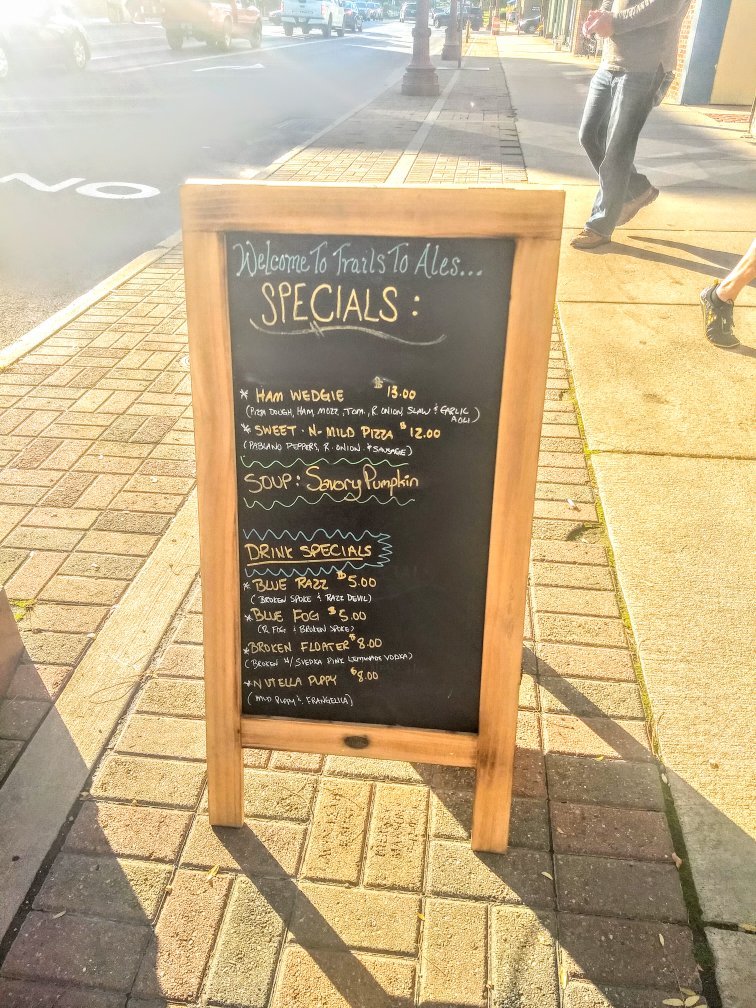 Welcome To Trails To Ales...
SPECIALS:
* HAM WEDGIE $13.00
(PIZZA DOUGH, HAM, MOZZ, TOM, R ONION, SLAW & GARLIC AOLI)
* SWEET-N-MILD PIZZA $12.00
(PABLANO PEPPERS, R. ONION & SAUSAGE)
SOUP: Savory Pumpkin
DRINK SPECIALS
* BLUE RAZZ $5.00
(BROKEN SPOKE & RAZZ DEVIL)
* BLUE FOG $5.00
(R. FOG & BROKEN SPOKE)
* BROKEN FLOATER $8.00
(BROKEN W/ SVEDKA PINK LEMONADE VODKA)
* NUTELLA PUPPY $8.00
(MUD PUPPY & FRANGELICA)
NO